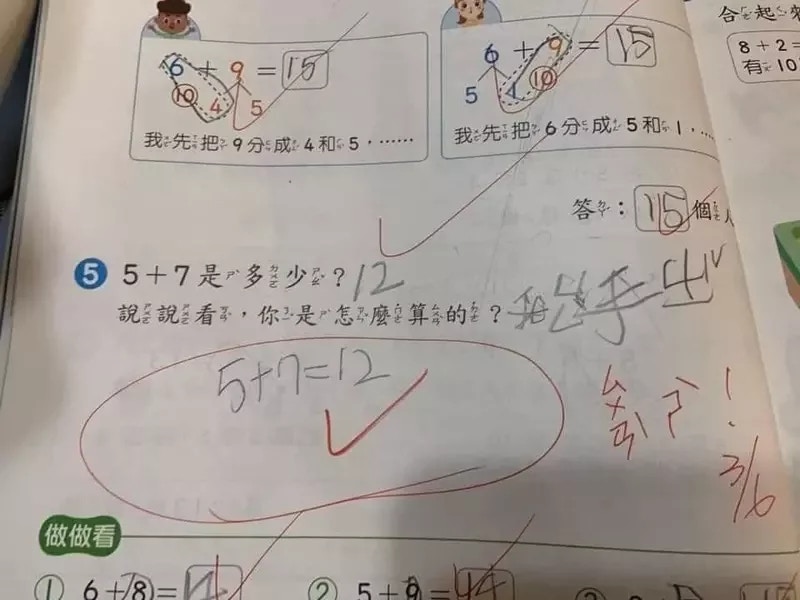 6 + 9 = 15
10 4 5
我先把9分成4和5，……
6 + 9 = 15
5 1 10
我先把6分成5和1，……
合起來
8+2=
有10
答：15個
5 5+7是多少？12
說說看，你是怎麼算的？用出手出
5+7=12
ㄙㄨㄢˋ ㄕˋ！
3/6
做做看
① 6+8=14
② 5+9=14